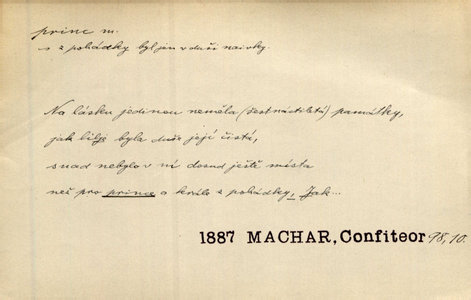 princ m.
→ z pohádky byl jen v duši naivky.
Na lásku jedinou neměla (šestnáctiletá) památky,
jak lilje byla duše její čistá,
snad nebylo v ní dosud ještě místa
než pro prince a krále z pohádky, Jak...
1887 MACHAR, Confiteor 98, 10.